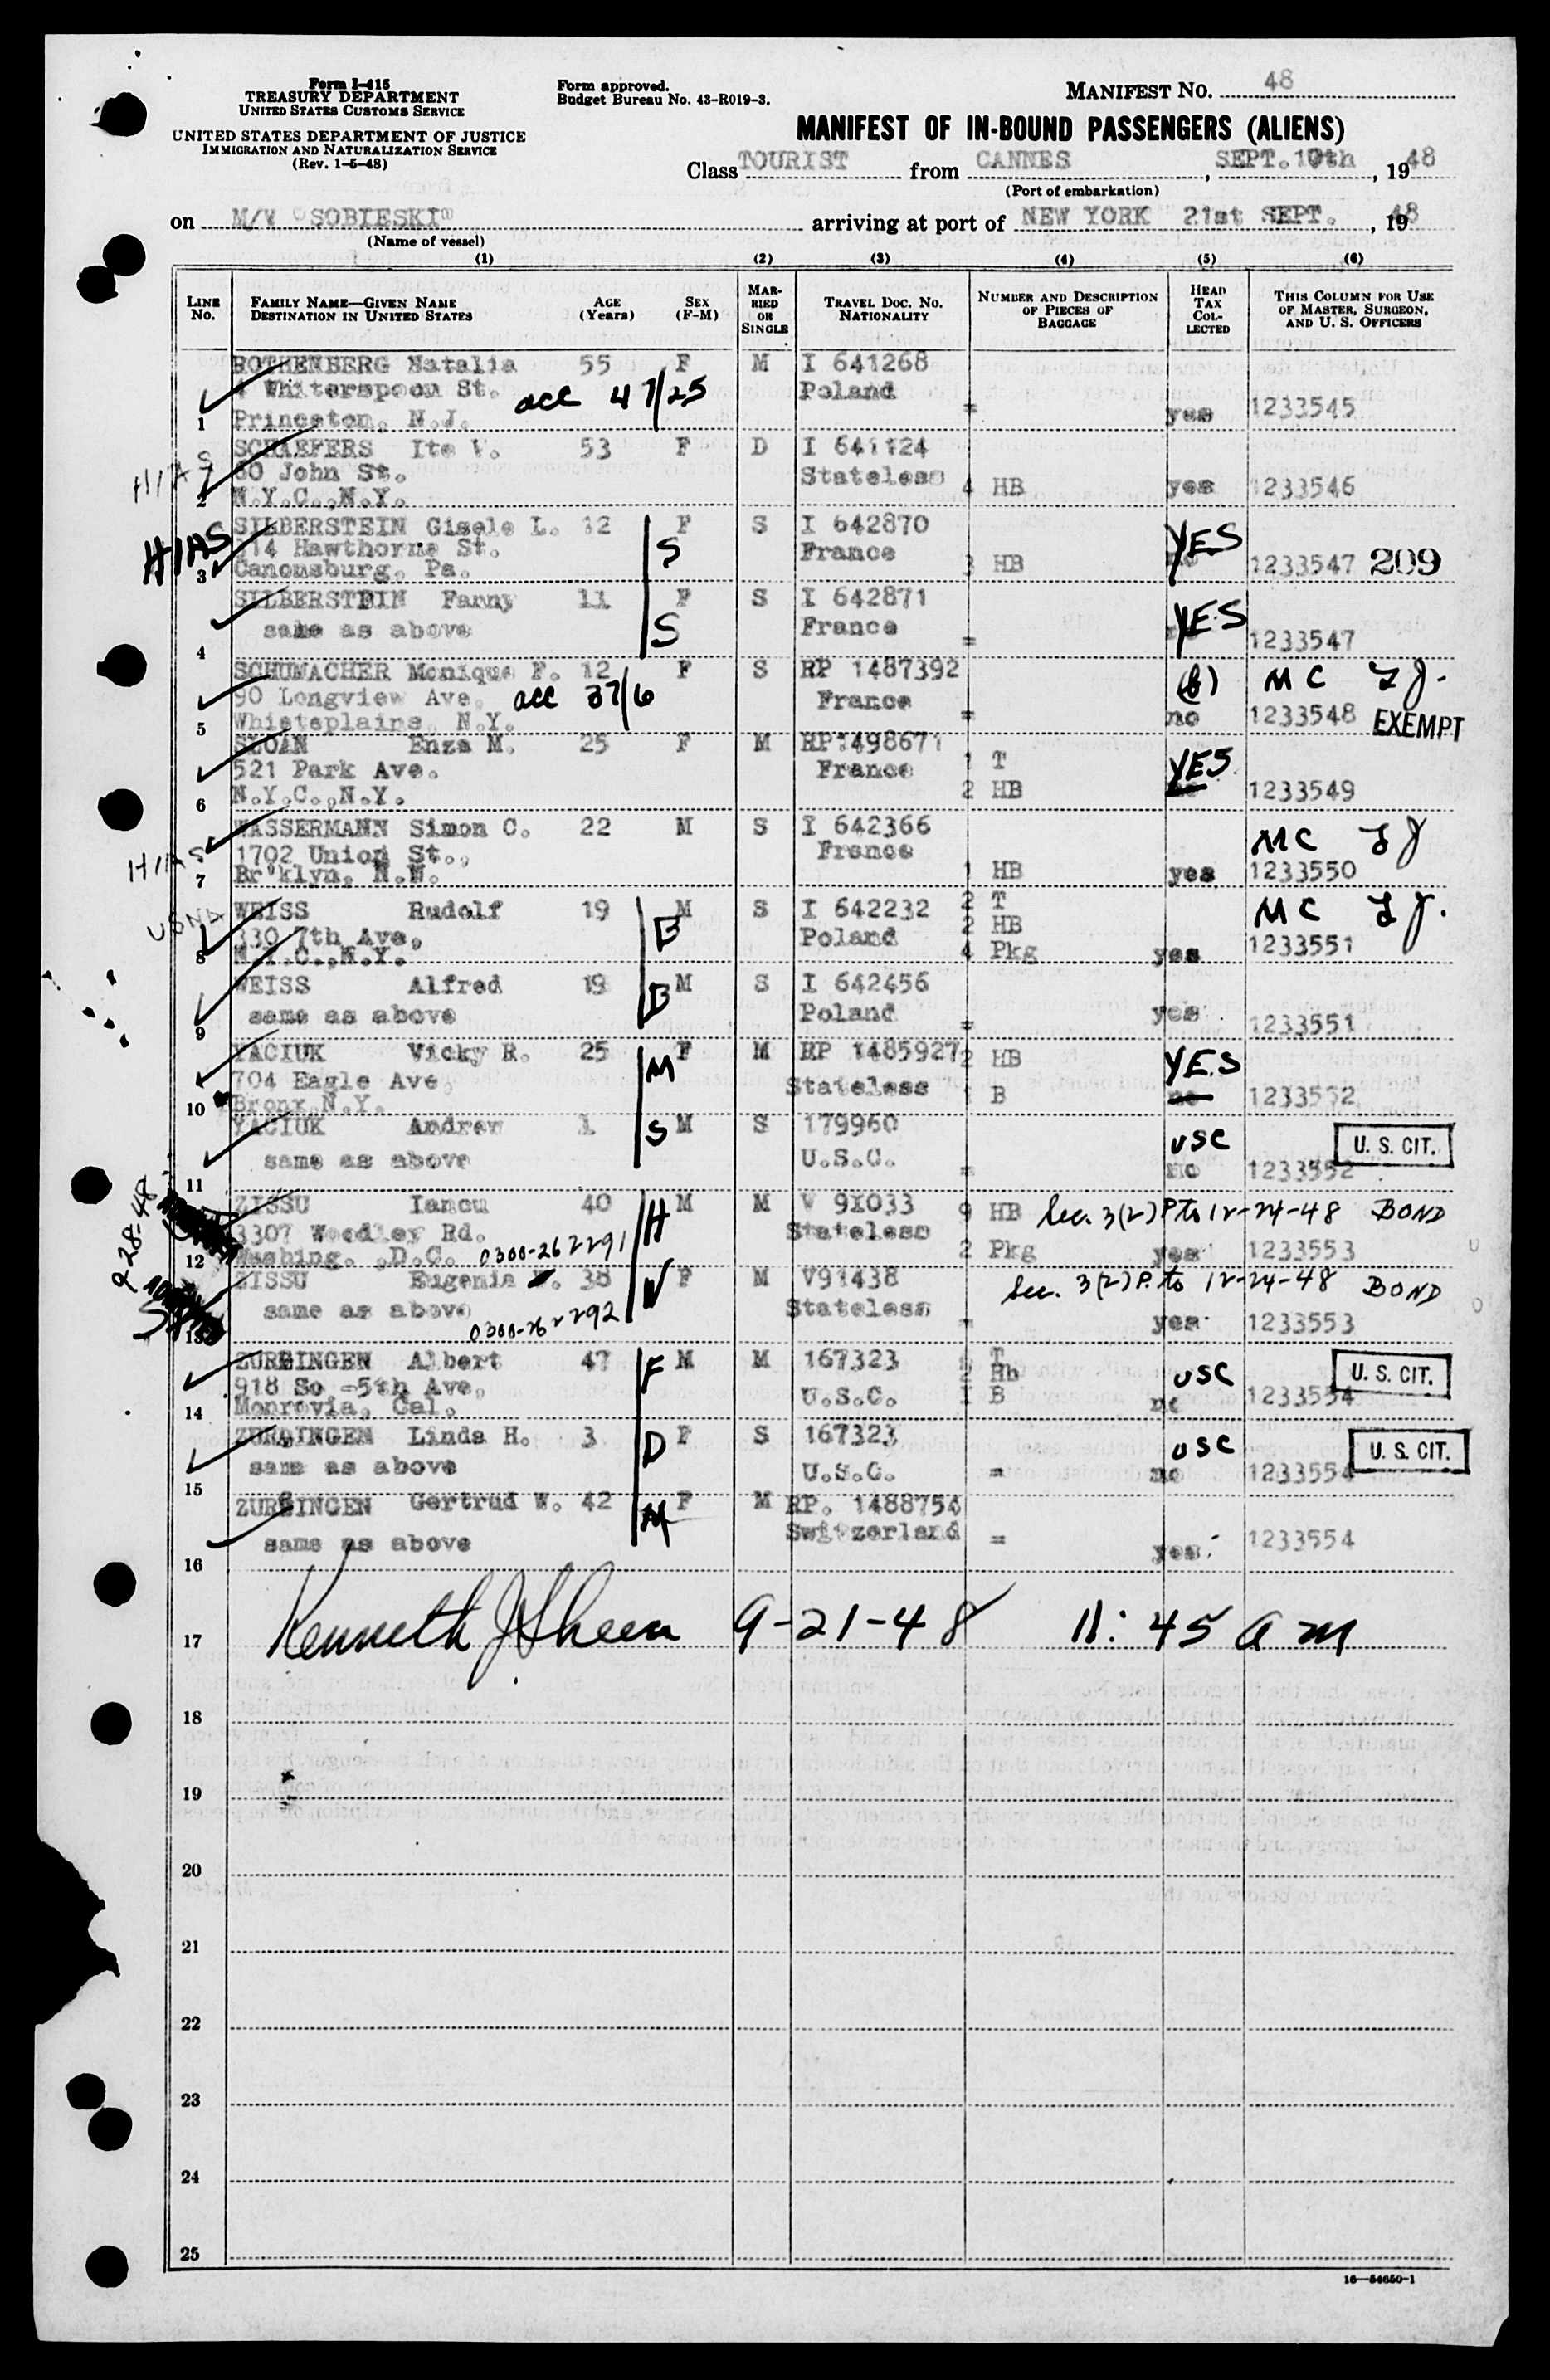 Form I-415
TREASURY DEPARTMENT
UNITED STATES CUSTOMS SERVICE
UNITED STATES DEPARTMENT OF JUSTICE
IMMIGRATION AND NATURALIZATION SERVICE
(Rev. 1-5-48)
Form approved.
Budget Bureau No. 43-R019-3.
MANIFEST NO. 48
MANIFEST OF IN-BOUND PASSENGERS (ALIENS)
Class TOURIST from CANNES, SEPT. 10th, 1948
(Port of embarkation)
on M/V "SOBIESKI" arriving at port of NEW YORK 21st SEPT., 1948
(Name of vessel)
(1) (2) (3) (4) (5) (6)
LINE No. FAMILY NAME—GIVEN NAME DESTINATION IN UNITED STATES AGE (Years) SEX (F-M) MARRIED OR SINGLE TRAVEL DOC. NO. NATIONALITY NUMBER AND DESCRIPTION OF PIECES OF BAGGAGE HEAD TAX COLLECTED THIS COLUMN FOR USE OF MASTER, SURGEON, AND U. S. OFFICERS
ROTHENBERG Natalia 55 F M I 641268
4 Whiterspoon St. acc 47/25 Poland
1 Princeton, N.J. = yes 1233545
SCHAEFERS Ite V. 53 F D I 641124
HIAS 80 John St. Stateless
2 N.Y.C.,N.Y. 4 HB yes 1233546
SILBERSTEIN Gisele L. 12 F S I 642870
HIAS 314 Hawthorne St. S France YES
3 Canonsburg, Pa. 3 HB no 1233547 209
SILBERSTEIN Fanny 11 F S I 642871
same as above S France YES
4 = 1233547
SCHUMACHER Monique F. 12 F S RP 1487392
90 Longview Ave. acc 37/6 France (b) MC LJ.
5 Whiteplains, N.Y. = no 1233548 EXEMPT
SLOAN Enza M. 25 F M RP1498671
521 Park Ave. France 1 T YES
6 N.Y.C.,N.Y. 2 HB no 1233549
WASSERMANN Simon C. 22 M S I 642366
HIAS 1702 Union St., France MC LJ
7 Br'klyn, N.W. 1 HB yes 1233550
USNA WEISS Rudolf 19 M S I 642232 2 T MC LJ.
330 7th Ave, B Poland 2 HB
8 N.Y.C.,N.Y. 4 Pkg yes 1233551
WEISS Alfred 19 M S I 642456
same as above B Poland yes
9 = 1233551
YACIUK Vicky R. 25 F M RP 1485927 2 HB YES
704 Eagle Ave, M Stateless 1 B no 1233552
10 Bronx N.Y.
YACIUK Andrew 1 M S 179960 USC U. S. CIT.
same as above S U.S.C.
11 = no 1233552
9-28-48 ZISSU Iancu 40 M M V 91033 9 HB Sec. 3(2) P. to 12-24-48 BOND
3307 Woodley Rd. H Stateless
12 Washing. ,D.C. 0300-262291 2 Pkg yes 1233553
ZISSU Eugenia 38 F M V91438 Sec. 3(2) P. to 12-24-48 BOND
same as above W Stateless
13 0300-262292 = yes 1233553
ZURBINGEN Albert 47 M M 167323 T USC U. S. CIT.
918 So -5th Ave, F 2 Hb
14 Monrovia, Cal. U.S.C. 1 B no 1233554
ZURBINGEN Linda H. 3 F S 167323 USC U. S. CIT.
same as above D U.S.C. = no 1233554
15
ZURBINGEN Gertrud W. 42 F M RP. 1488754
same as above M Switzerland = yes 1233554
16
17 Kenneth J Sheen 9-21-48 11:45 am
18
19
20
21
22
23
24
25
16—54650-1